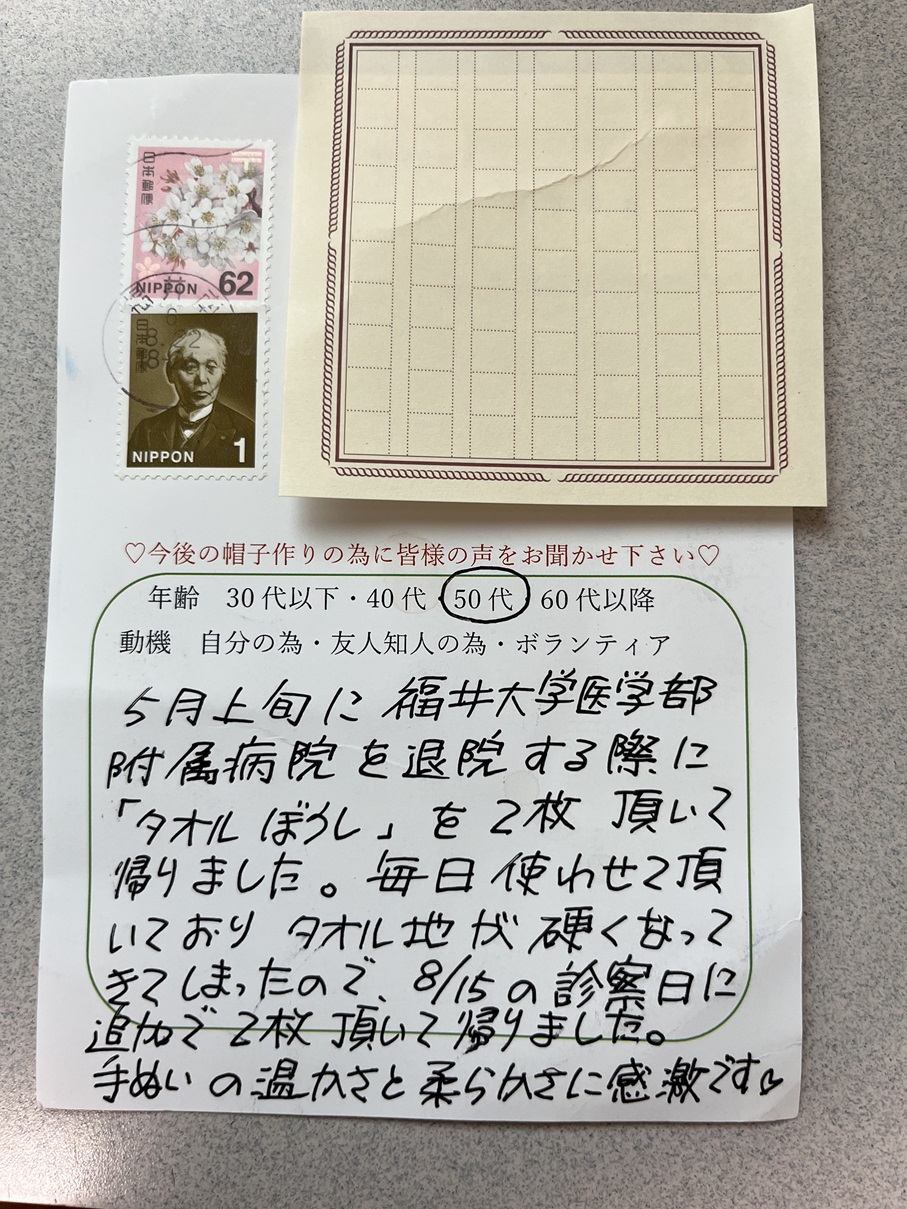 日本郵便
NIPPON 62
日本郵便
NIPPON 1
♡今後の帽子作りの為に皆様の声をお聞かせ下さい♡
年齢 30代以下・40代・50代 60代以降
動機 自分の為・友人知人の為・ボランティア
5月上旬に 福井大学医学部
附属病院を退院する際に
「タオルぼうし」を2枚 頂いて
帰りました。毎日使わせて頂
いており タオル地が硬くなって
きてしまったので、8/15の診察日に
追加で2枚頂いて帰りました。
手ぬいの温かさと柔らかさに感激です♡